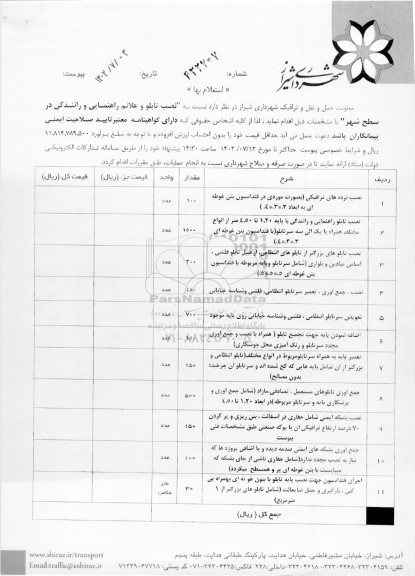 شهرداری شیراز
شماره: ۶۲۲۷۰۷
تاریخ:
پیوست:
« استعلام بها »
معاونت حمل و نقل و ترافیک شهرداری شیراز در نظر دارد نسبت به "نصب تابلو و علائم راهنمایی و رانندگی در
سطح شهر" با مشخصات ذیل اقدام نماید ، لذا از کلیه اشخاص حقوقی که دارای گواهینامه معتبر تایید صلاحیت ایمنی
پیمانکاران باشد دعوت بعمل می آید حداقل قیمت خود را بدون احتساب ارزش افزوده و با توجه به مبلغ برآورد ۱۱,۸۱۴,۷۸۹,۵۰۰
ریال و شرایط خصوصی پیوست حداکثر تا مورخ ۱۴۰۲/۰۷/۱۲ ساعت ۱۴:۳۰ پیشنهاد خود را از طریق سامانه تدارکات الکترونیکی
دولت (ستاد) ارائه نمایند تا در صورت صرفه و صلاح شهرداری نسبت به انجام عملیات، طبق مقررات اقدام گردد.
ردیف شرح مقدار واحد قیمت جزء (ریال) قیمت کل (ریال)
۱ نصب نرده های ترافیکی (بصورت موردی در فنداسیون بتن غوطه ۱۰۰ عدد
ای به ابعاد ۳.*۳.*۴.)
۲ نصب تابلو راهنمایی و رانندگی با پایه ۱.۲۰ تا ۴.۵۰ متر از انواع ۱۵۰۰ عدد
مختلف همراه با یک الی سه سرتابلو(با فنداسیون بتن غوطه ای
۳.*۳.*۴.)
۳ نصب تابلو های بزرگتر از تابلو های انتظامی، از قبیل تابلو فلشی ، ۳۰۰ عدد
اسامی میادین و بلواری (شامل سرتابلو و پایه مربوطه با فنداسیون
بتن غوطه ای ۵.*۵.*۵.)
۴ نصب ، جمع آوری ، تعمیر سرتابلو انتظامی، فلشی وشناسه خیابانی عدد
۵ تعویض سرتابلو انتظامی ، فلشی وشناسه خیابانی روی پایه موجود ۷۰۰ عدد
۶ اضافه نمودن پایه جهت تجمیع تابلو ( همراه با نصب و جمع آوری عدد
مجدد سرتابلو و رنگ آمیزی محل جوشکاری)
۷ تعمیر پایه به همراه سرتابلومربوط در انواع مختلف(تابلو انتظامی و ۲۵۰ عدد
بزرگتر از آن شامل پایه هایی که کج شده اند و سرتابلو آن چرخیده
بدون مصالح)
۸ جمع آوری تابلوهای مستعمل ، تصادفی،مازاد (شامل جمع آوری و ۵۰۰ عدد
برشکاری پایه و سرتابلو مربوطه)در ابعاد ۱.۲۰ تا ۴.۵۰
۹ نصب بشکه ایمنی شامل حفاری در آسفالت ، بتن ریزی و پر کردن ۱۵۰ عدد
۷۰ درصد ارتفاع ترافیکی آن با پوکه صنعتی طبق مشخصات فنی
پیوست
۱۰ جمع آوری بشکه های ایمنی صدمه دیده و یا اضافی پروژه ها که ۱۰۰ عدد
نیاز به نصب مجدد ندارد(شامل حفاری ناشی از جای بشکه که
میبایست با بتن غوطه ای پر و همسطح میگردد)
۱۱ اجرای فنداسیون جهت نصب پایه تابلو با بتون غوطه ای بهمراه پی ۳۰ متر
کنی ، بارگیری و حمل ضایعات (شامل تابلو های بزرگتر از ۱ مکعب
مترمربع)
جمع کل ( ریال)
ParsNamadData
آدرس: شیراز، خیابان مشیرفاطمی، خیابان هدایت، پارکینگ طبقاتی هدایت، طبقه پنجم
www.shiraz.ir/transport
Email:traffic@eshiraz.ir